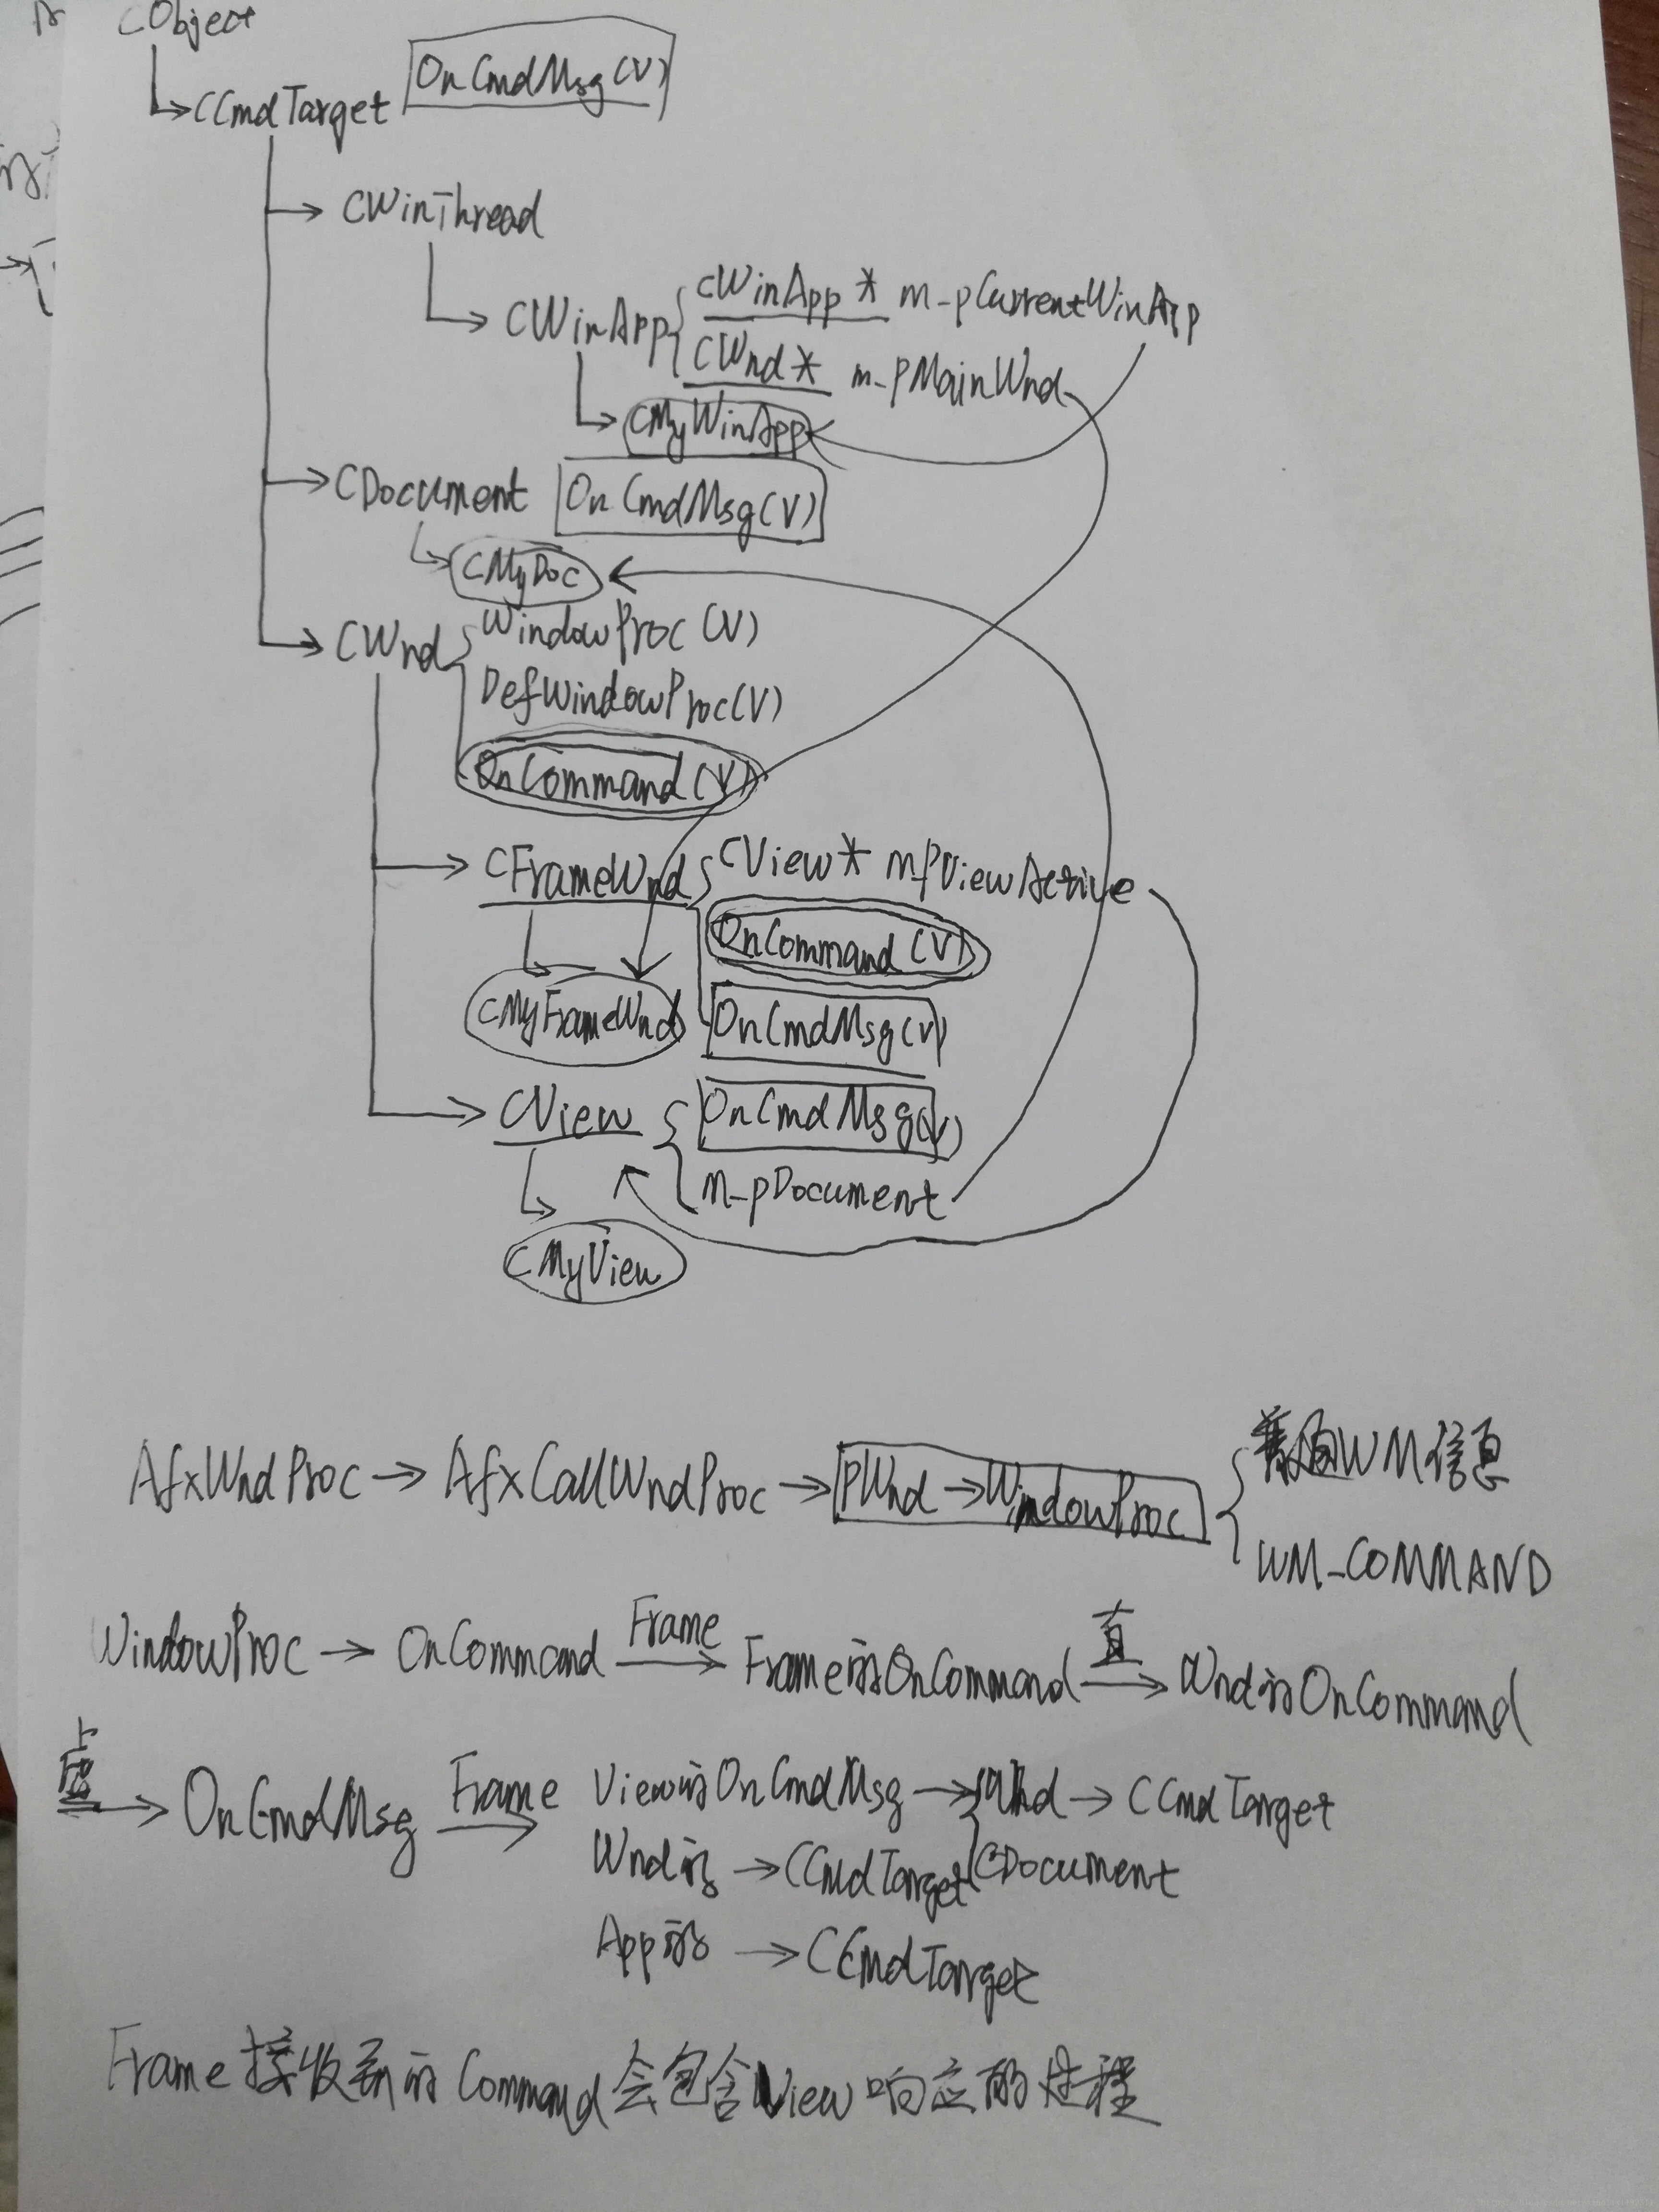 CObject
CCmdTarget OnCmdMsg(V)
CWinThread
CWinApp CWinApp * m_pCurrentWinApp
CWnd * m_pMainWnd
CMyWinApp
CDocument OnCmdMsg(V)
CMyDoc
CWnd WindowProc(V)
DefWindowProc(V)
OnCommand(V)
CFrameWnd CView* m_pViewActive
OnCommand(V)
CMyFrameWnd OnCmdMsg(V)
CView OnCmdMsg(V)
m_pDocument
CMyView
AfxWndProc → AfxCallWndProc → pWnd → WindowProc
WM信息
WM_COMMAND
WindowProc → OnCommand Frame→ Frame的OnCommand 直→ Wnd的OnCommand
→ OnCmdMsg Frame→ View的OnCmdMsg → Wnd → CCmdTarget
Wnd的 → CCmdTarget CDocument
App的 → CCmdTarget
Frame接收到的Command会包含View响应的过程